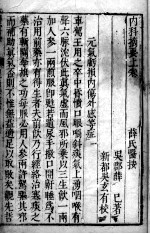 薛氏醫按
內科摘要上卷
吳郡 薛 己 著
新都 吳 玄有 校
元氣虧損內傷外感等症
車駕王用之卒中昏憒口眼喎斜痰氣上湧咽喉有
聲六脉沉伏此真氣虛而風邪所乘以三生飲一兩
加人參一兩煎服即甦若遺尿手撒口開鼾睡為不
治用前藥亦有得生者夫前飲乃行經絡治寒痰之
藥有斬關奪旗之功每服必用人參兩許駕驅其邪
而補助真氣否則不惟無益適足以取敗矣觀先哲